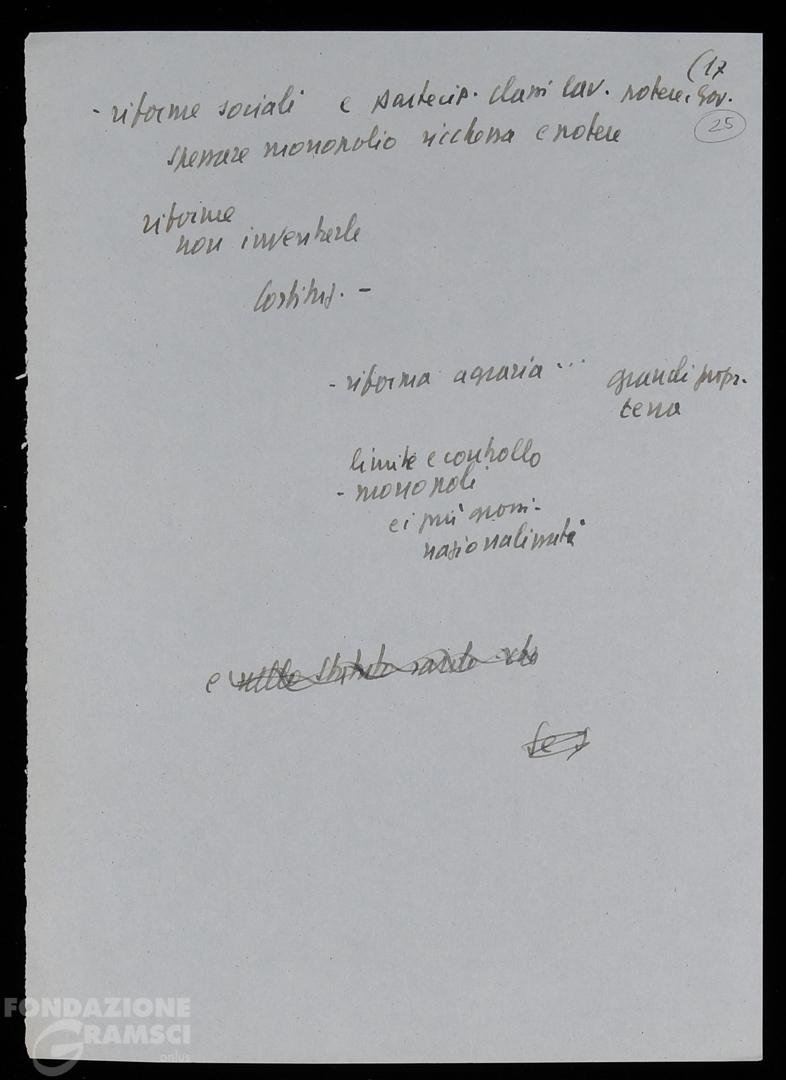 (17
- riforme sociali e partecip. classi lav. potere, Gov.
25
spezzare monopolio ricchezza e potere
riforme
non inventarle
Costituz. -
- riforma agraria ... grandi propr.
terra
limite e controllo
- monopoli
e i più grossi -
nazionalizzati
e nello
FONDAZIONE
GRAMSCI
onlus